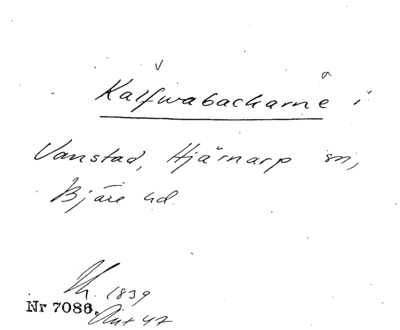 v a
Kalfwabackarne i
Vanstad, Hjärnarp sn,
Bjäre hd.
1839
Nr 7086.